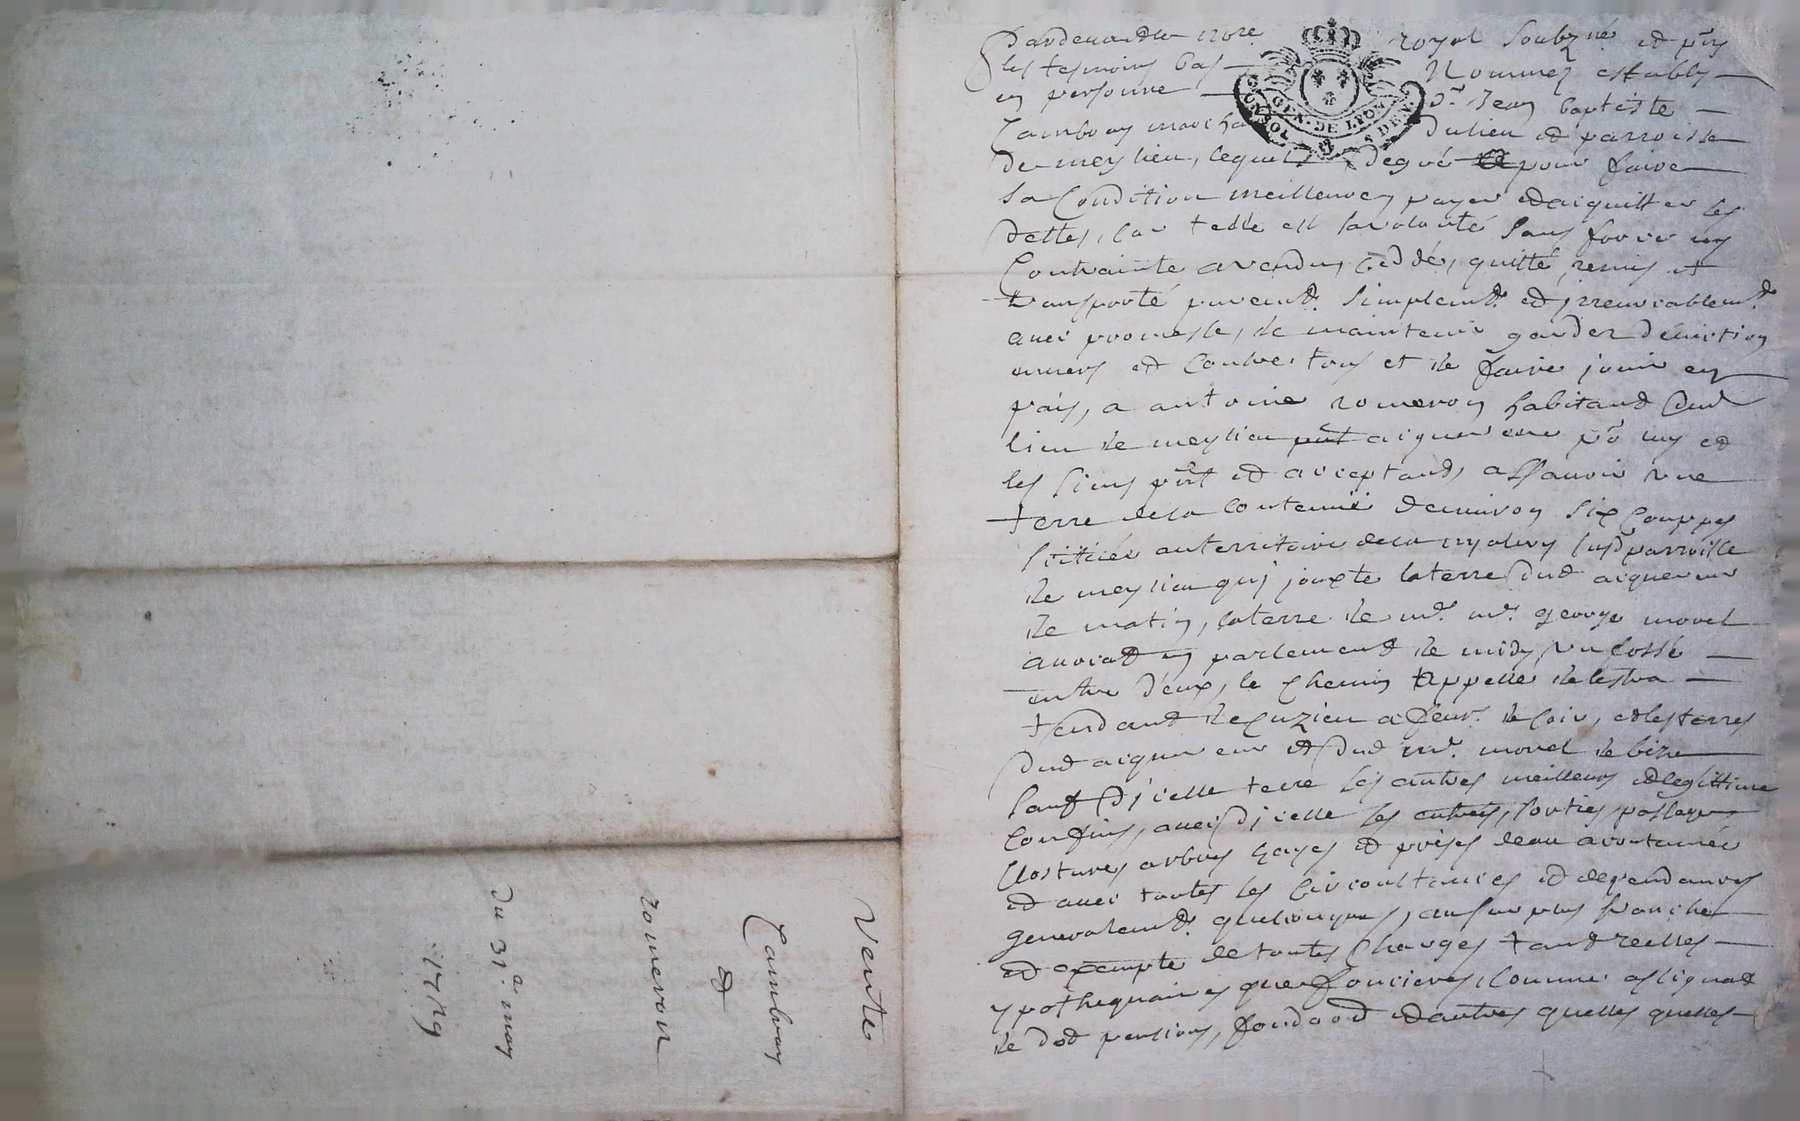 Vente
Cambray
&
romeron
du 31e may
1719
Pardevant le no.re royal soubzné et pñs
les tesmoins bas nommez estably
en personne s.r Jean baptiste
Cambray marcha dulieu et parroisse
de meylieu, lequel de gré pour faire
sa Condition meilleure payer et aiquitter ses
dettes, car telle est sa volonté sans force ny
Contrainte a vendu, ceddé, quitté, remis et
transporté purem.t simplem.t et jrreuocablem.t
auec promesse, de maintenir garder d'éuiction
enuers et Contre tous et de faire jouir en
paix, a antoine romeron habitant dud
lieu de meylieu aiquereur po.r luy et
les siens pñt et acceptant, assauoir vne
terre de la contenue d'enuiron six Couppes
scituée au territoire de la parroisse
de meylieu qui jouxte la terre dud aiquereur
de matin, la terre de m.r m.re george morel
auocat en parlement de midy, vn fossé
entre deux, le chemin appellé de lestra
tendant de Cuzieu a feur.s de soir, et les terres
dud aiquereur et dud m.r morel de bize
sauf d'jcelle terre ses autres meilleurs et legittime
Confins, auec d'jcelle ses entrées, sorties, passages
Clostures arbres hayes et prises d'eau acoutumée
et auec toutes ses circonstances et dependances
generalem.t quelconques, au surplus franche
et exempte de toutes Charges tant reelles
ypothequaires que foncieres, Comme
de dot pension, fondaõn et autres quelles quelles
GEN. DE LYON